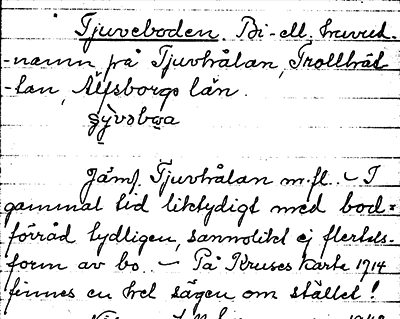 Tjuveboden. Bi- ell. huvud-
-namn på Tjuvhålan, Trollhät-
-tan, Älfsborgs län.

Jämf. Tjuvhålan m. fl. - I
gammal tid liktydigt med bod=
förråd tydligen, sannolikt ej flertals-
form av bo. - På Kruses karta 1714
finnes en hel sägen om stället!